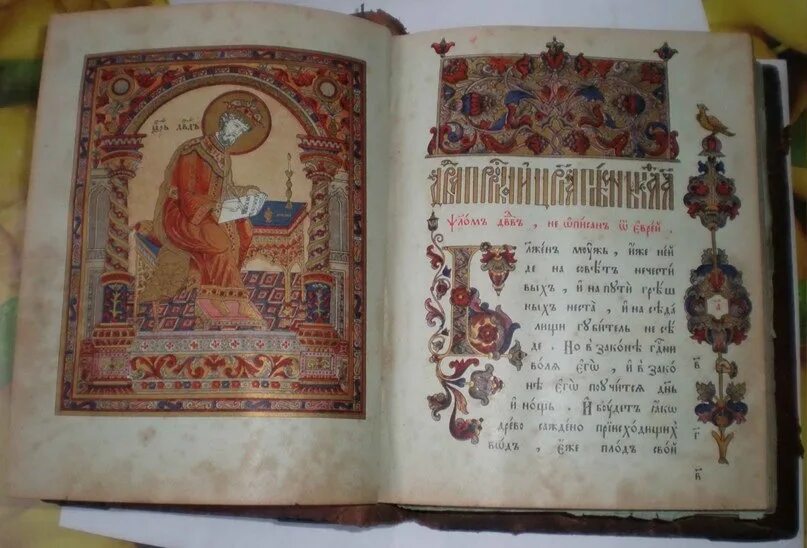 Црь Двдъ
Ѱломъ двдвъ , не ѡписан ѿ еврей .
Блженъ моужь , иже не и
де на совѣтъ нечести
выхъ , и на пути грѣш
ныхъ неста , и на сѣда
лищи губитель не сѣ
де . Но в законѣ гдни
воля егѡ , и в зако
нѣ егѡ поучится днь
и нощь . И боудетъ ꙗко
древо саждено приисходищих
вѡдъ , еже плодъ свой
а
в
г
в